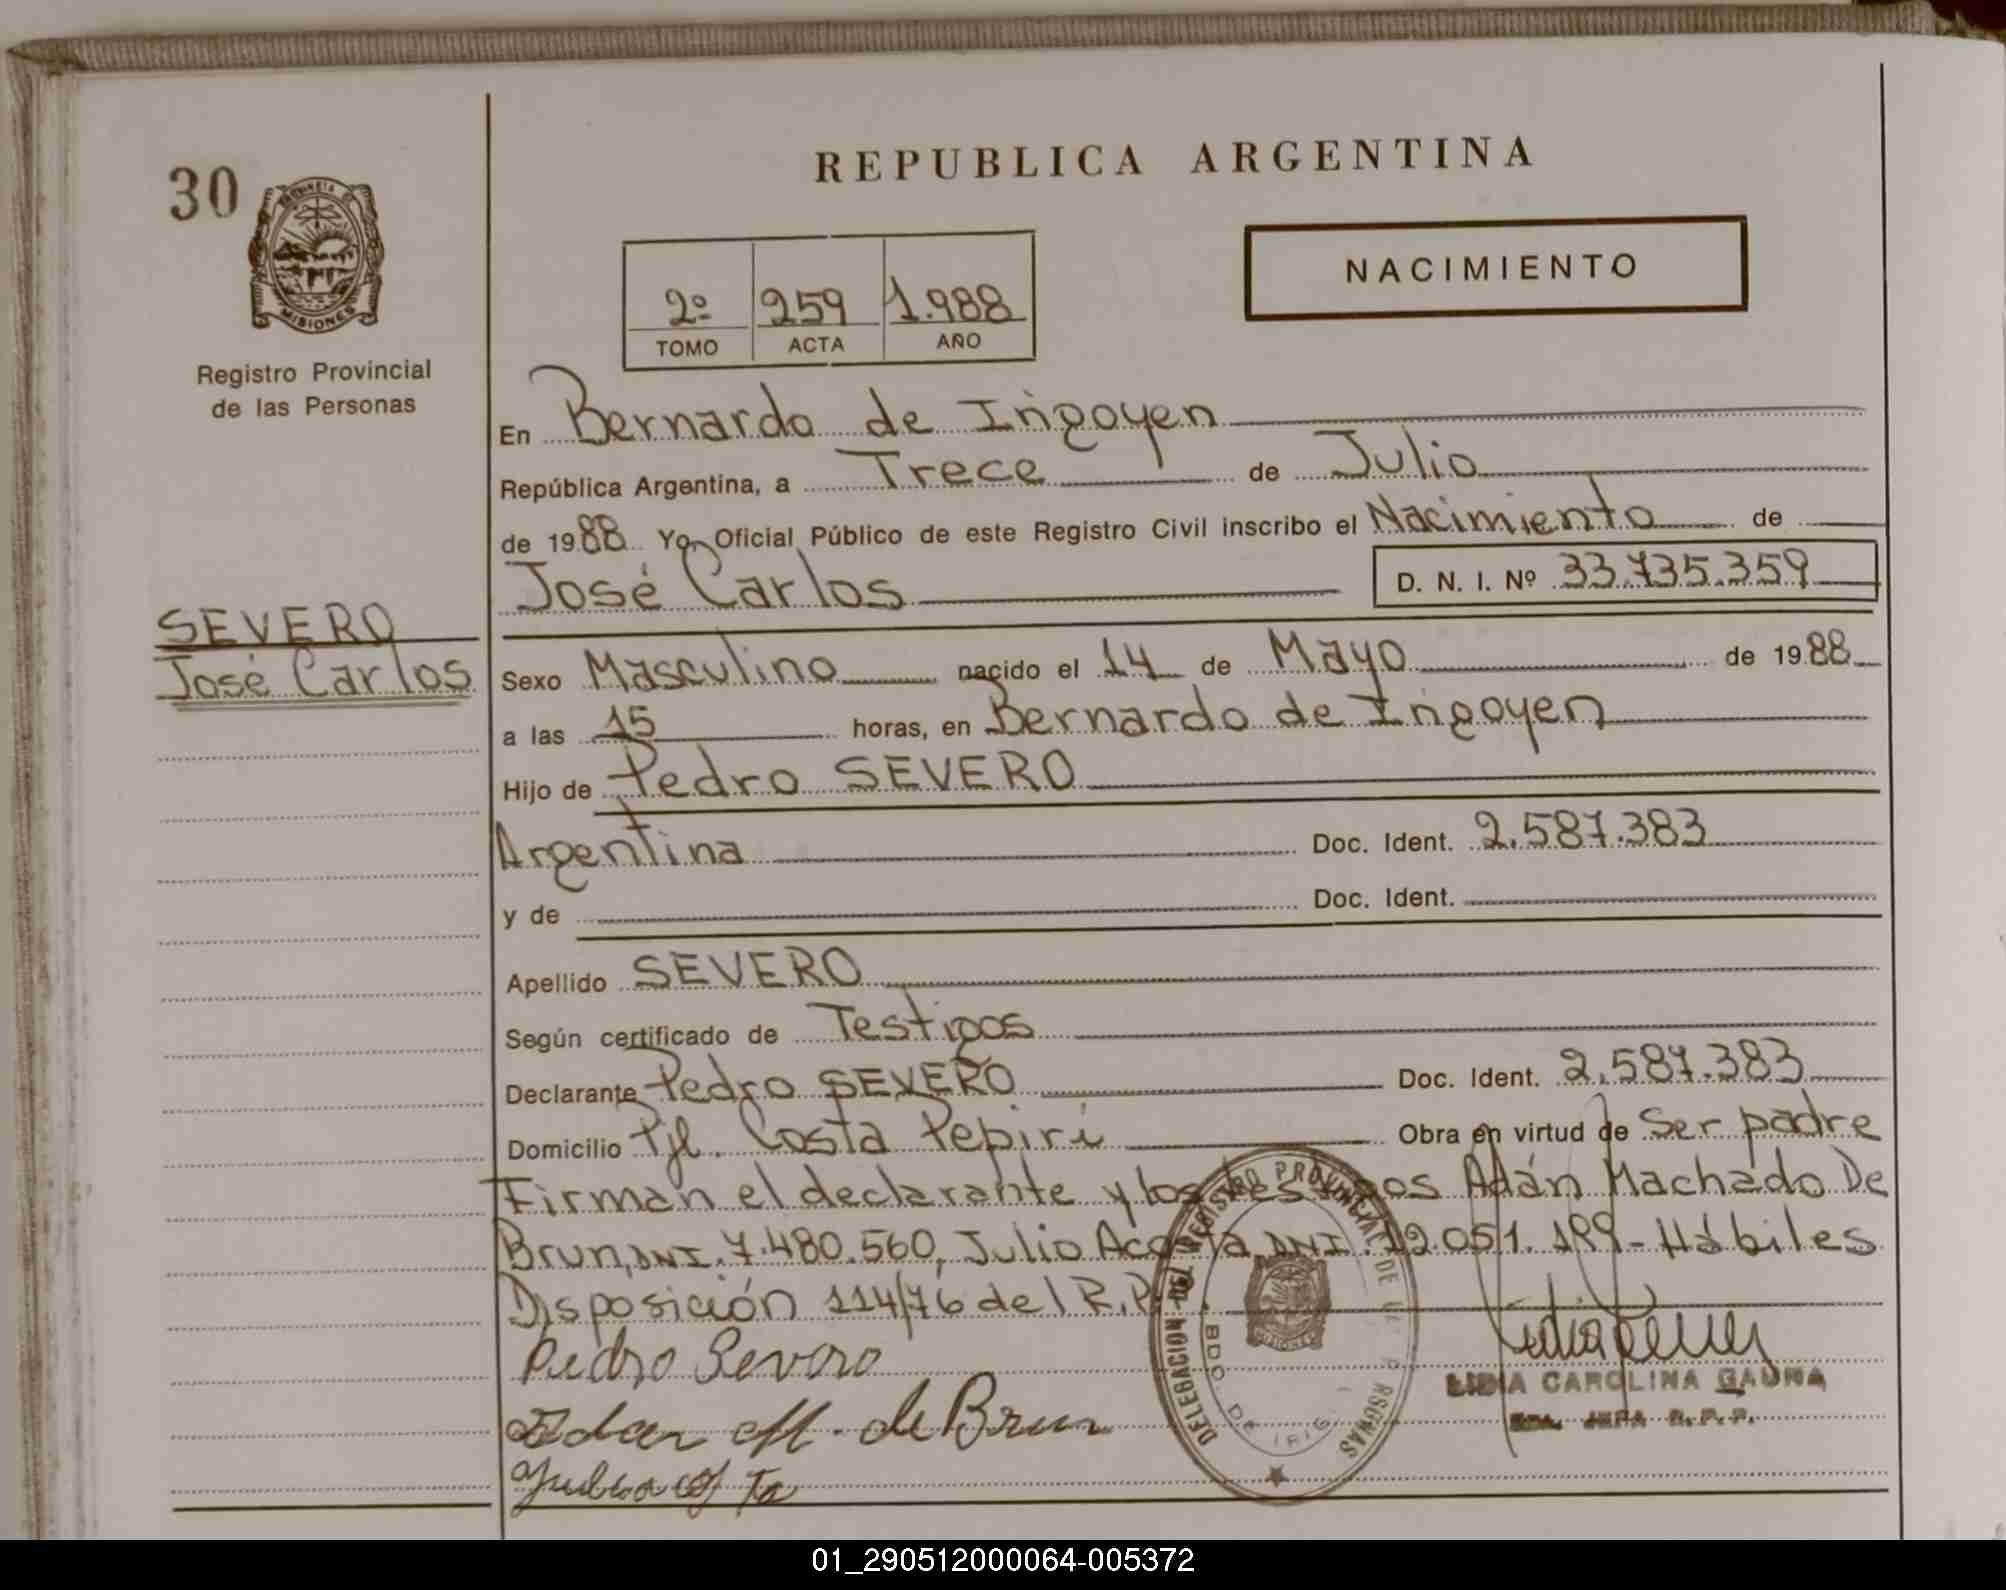 REPUBLICA ARGENTINA
30
PROVINCIA DE
MISIONES
Registro Provincial
de las Personas
NACIMIENTO
2º 259 1.988
TOMO ACTA AÑO
En Bernardo de Irigoyen
República Argentina, a Trece de Julio
de 1988 Yo, Oficial Público de este Registro Civil inscribo el Nacimiento de
José Carlos D. N. I. Nº 33.735.359
SEVERO
José Carlos
Sexo Masculino nacido el 14 de Mayo de 1988
a las 15 horas, en Bernardo de Irigoyen
Hijo de Pedro SEVERO
Argentina Doc. Ident. 2.587.383
y de Doc. Ident.
Apellido SEVERO
Según certificado de Testigos
Declarante Pedro SEVERO Doc. Ident. 2.587.383
Domicilio Pje. Costa Pepirí Obra en virtud de Ser padre
Firman el declarante y los testigos Adán Machado De
Brun, DNI. 7.480.560, Julio Acosta, DNI. 12.051.199- Hábiles
Disposición 114/76 del R.P.
Pedro Severo
Adan M. de Brun
DELEGACION DEL REGISTRO PROVINCIAL DE PERSONAS
BDO. DE IRIG.
MISIONES
LIDIA CAROLINA GAUNA
JEFA R.P.P.
01_290512000064-005372